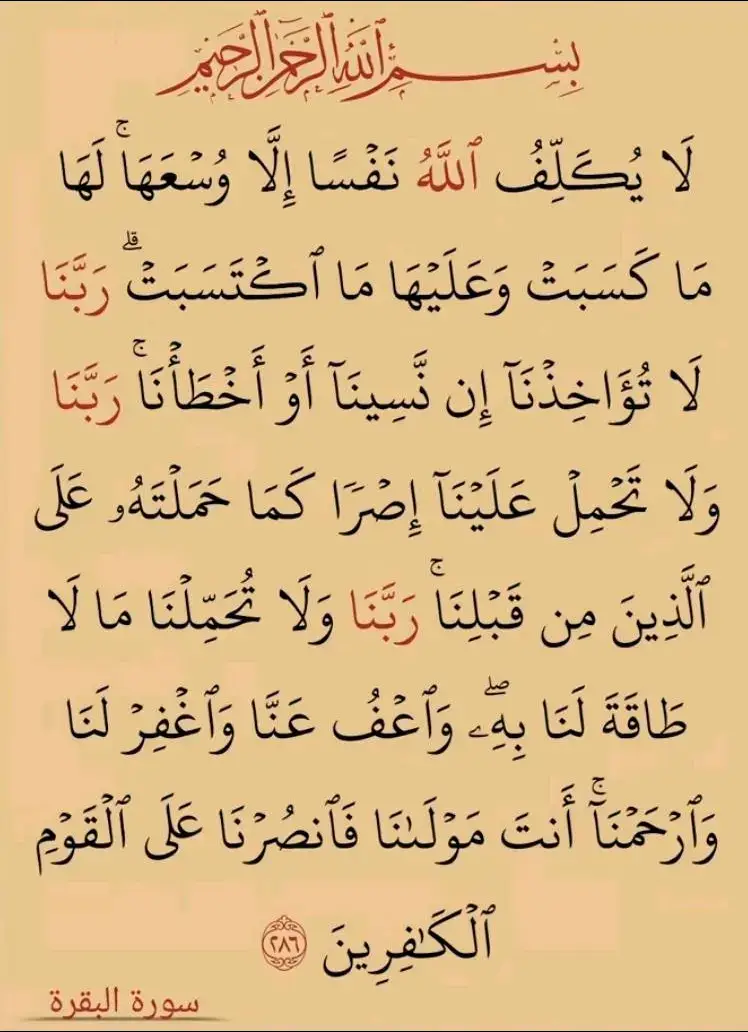 بِسْمِ ٱللَّهِ ٱلرَّحْمَٰنِ ٱلرَّحِيمِ
لَا يُكَلِّفُ ٱللَّهُ نَفْسًا إِلَّا وُسْعَهَاۚ لَهَا
مَا كَسَبَتْ وَعَلَيْهَا مَا ٱكْتَسَبَتْۗ رَبَّنَا
لَا تُؤَاخِذْنَآ إِن نَّسِينَآ أَوْ أَخْطَأْنَاۚ رَبَّنَا
وَلَا تَحْمِلْ عَلَيْنَآ إِصْرًا كَمَا حَمَلْتَهُۥ عَلَى
ٱلَّذِينَ مِن قَبْلِنَاۚ رَبَّنَا وَلَا تُحَمِّلْنَا مَا لَا
طَاقَةَ لَنَا بِهِۦۖ وَٱعْفُ عَنَّا وَٱغْفِرْ لَنَا
وَٱرْحَمْنَآۚ أَنتَ مَوْلَىٰنَا فَٱنصُرْنَا عَلَى ٱلْقَوْمِ
ٱلْكَٰفِرِينَ ٢٨٦
سورة البقرة